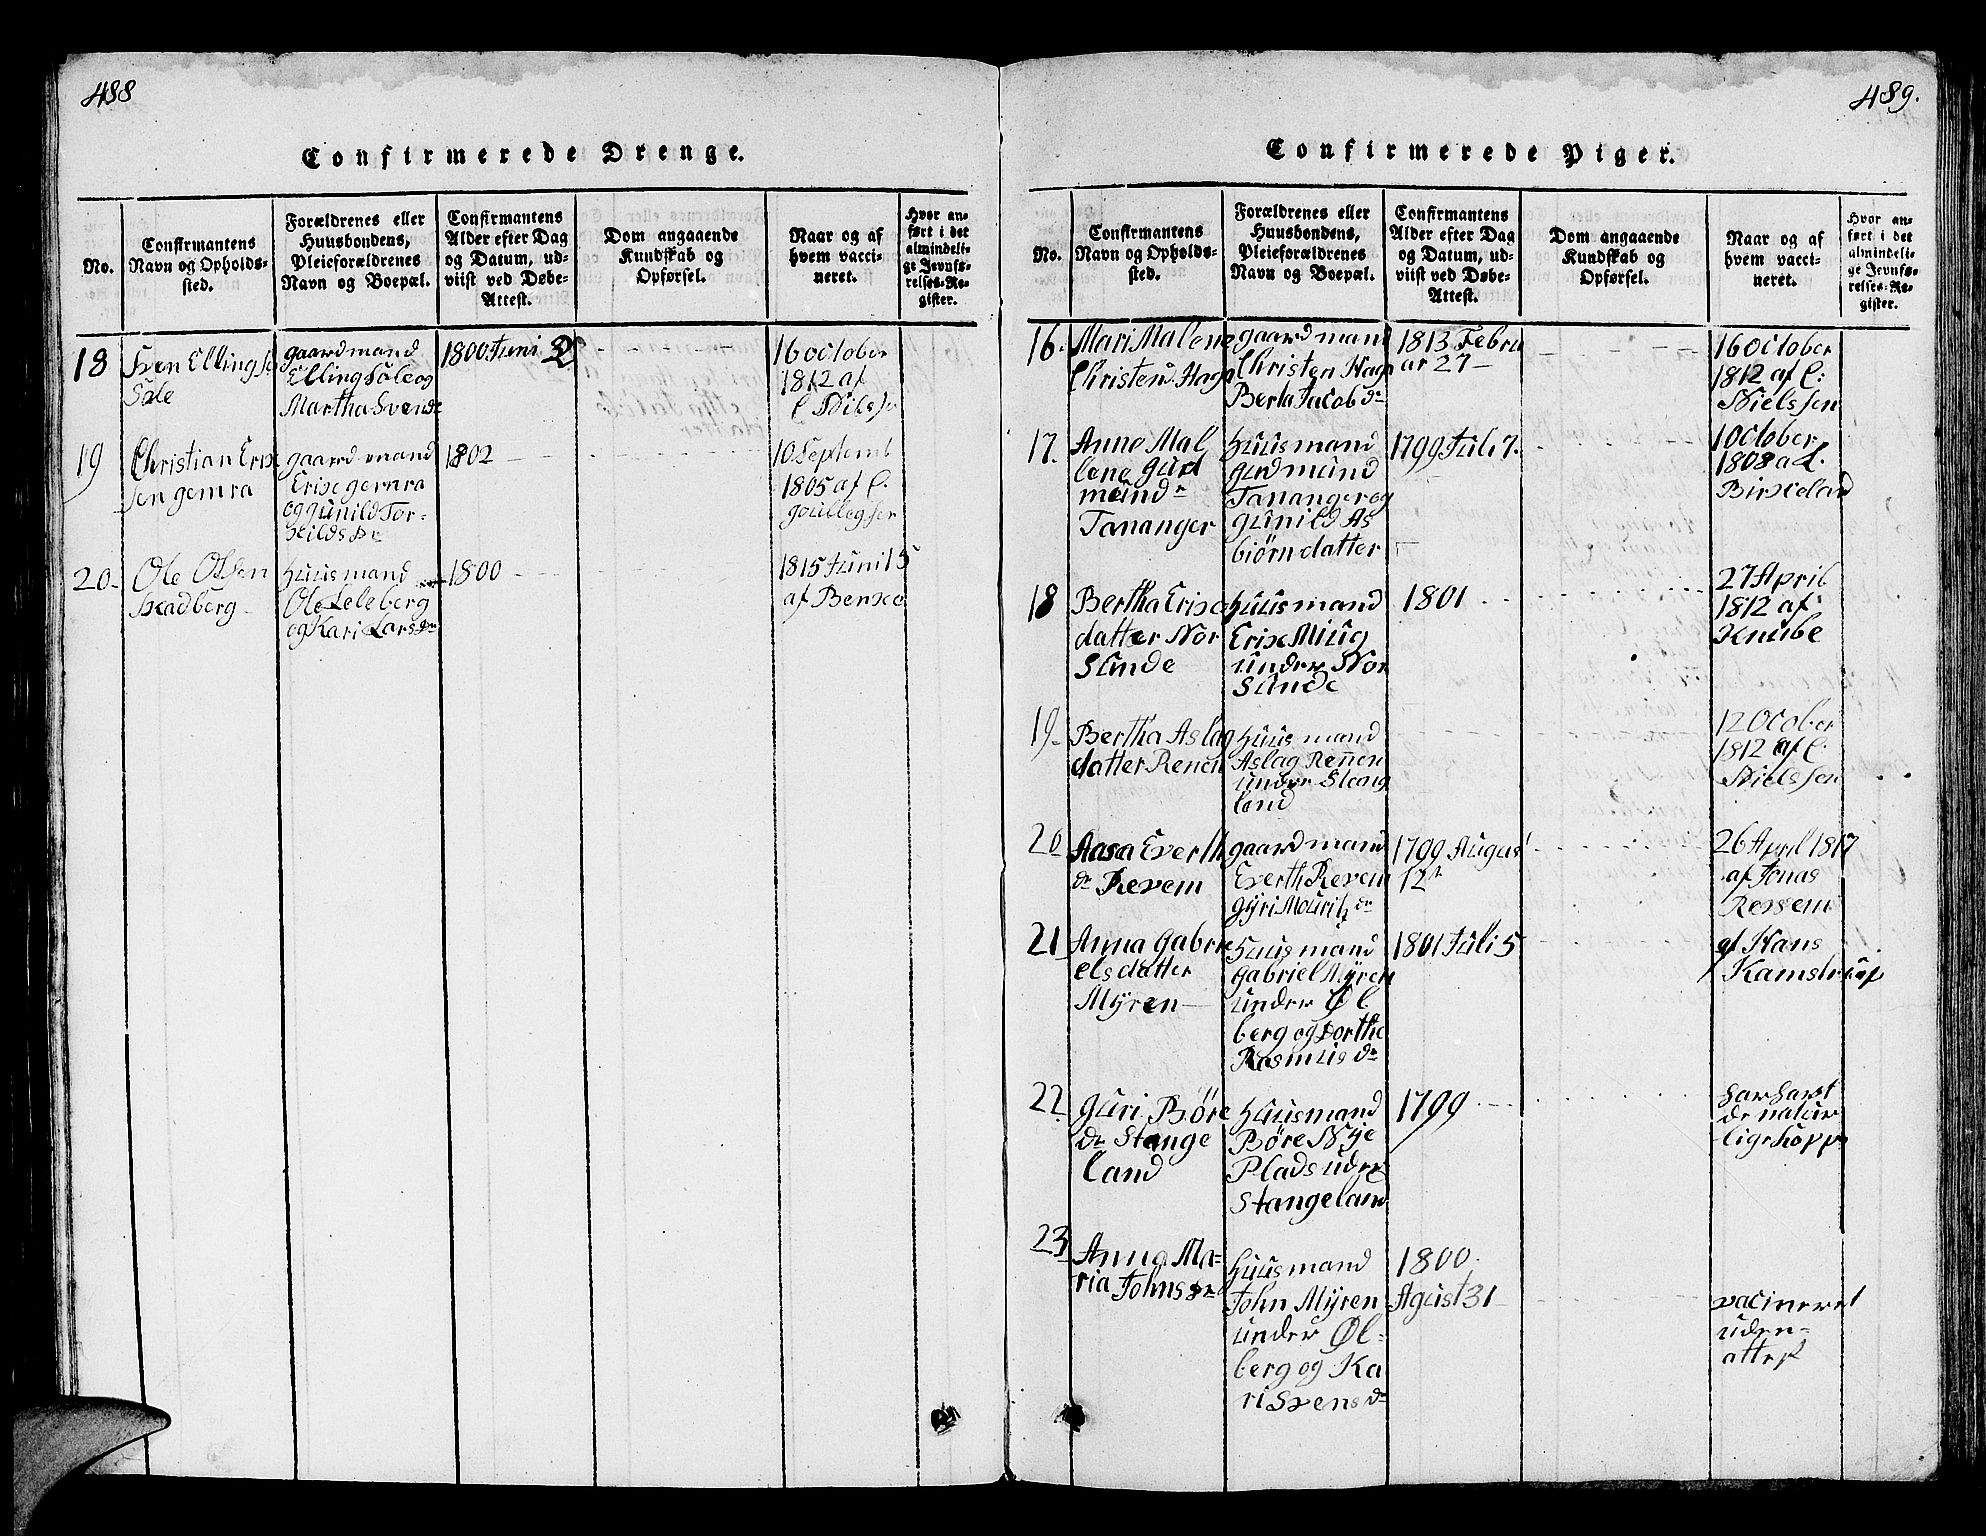 488
Confirmerede Drenge.
No.
Confirmantens
Navn og Opholds-
sted.
Forældrenes eller
Huusbondens,
Pleieforældrenes
Navn og Boepæl.
Confirmantens
Alder efter Dag
og Datum, ud-
viist ved Døbe-
Attest.
Dom angaaende
Kundskab og
Opførsel.
Naar og af
hvem vacci-
neret.
Hvor an-
ført i det
almindeli-
ge Jevnfø-
relses-Re-
gister.
18
Sven Elling sen
Sole
gaardmand
Elling Sole og
Martha Svends
1800 Juni
16 october
1812 af
C Nielssen
19
Christian Erix
sen gemra
gaard mand
Erixe gemra
og gunild Tor-
kilds Dr
1802
10 Septemb
1805 af C.
20-
Ole Olsen
Skadberg
Huusmand
Ole Leleberg
og Kari Lars dr
1800
1815 Juni 15
af Benxe
489.
Confirmerede Piger.
No.
Confirmantens
Navn og Opholds-
sted.
Forældrenes eller
Huusbondens,
Pleieforældrenes
Navn og Boepæl.
Confirmantens
Alder efter Dag
og Datum, ud-
viist ved Døbe-
Attest.
Dom angaaende
Kundskab og
Opførsel.
Naar og af
hvem vacci-
neret.
Hvor an-
ført i det
almindeli-
ge Jevnfø-
relses-Re-
gister.
16
Mari Malene
Christend Haga
gaard mand
Christen Haga
Berta Jacob dr
1813 Febru
ar 27
16 october
1812 af C:
Nielssen
17.
Anne Mal
lene Gud
mund dr
Tananger
Huusmand
gudmund
Tananger og
gunild As
biørn datter
1799 Juli 7.
1 October
1808 af C.
Birxeland
18
Bertha Erixe
datter Nor
Sunde
Huusmand
Erixe Miug
under Nor
Sunde
1801
27 April
1812 af
Knube
19.
Bertha Aslag
datter Renen
Huusmand
Aslag Rennen
under Stang
land
12 October
1812 af C.
Nielssen
20
Aasa Everth
dr Revem
gaardmand
Everth Revem
gyri Mouritz dr
1799 August
12
26 April 1817
af Jonas
Ressem
21
Anna Gabri
elsdatter
Myren
Huusmand
gabriel Myren
under Øl
berg og Dorthe
Rasmus dr
1801 Juli 5
af Hans
Kamstrup
22
Guri Børe
dr Stange
land
Huusmand
Børe Nye
Plads under
Stangeland
1799
har havt
de natur
lige kopper
23
Anna Ma-
ria Johns dr
Huusmand
John Myren
under Øl-
berg og Ka
ri Svens dr
1800.
Agust 31
vacineret
uden-
attest